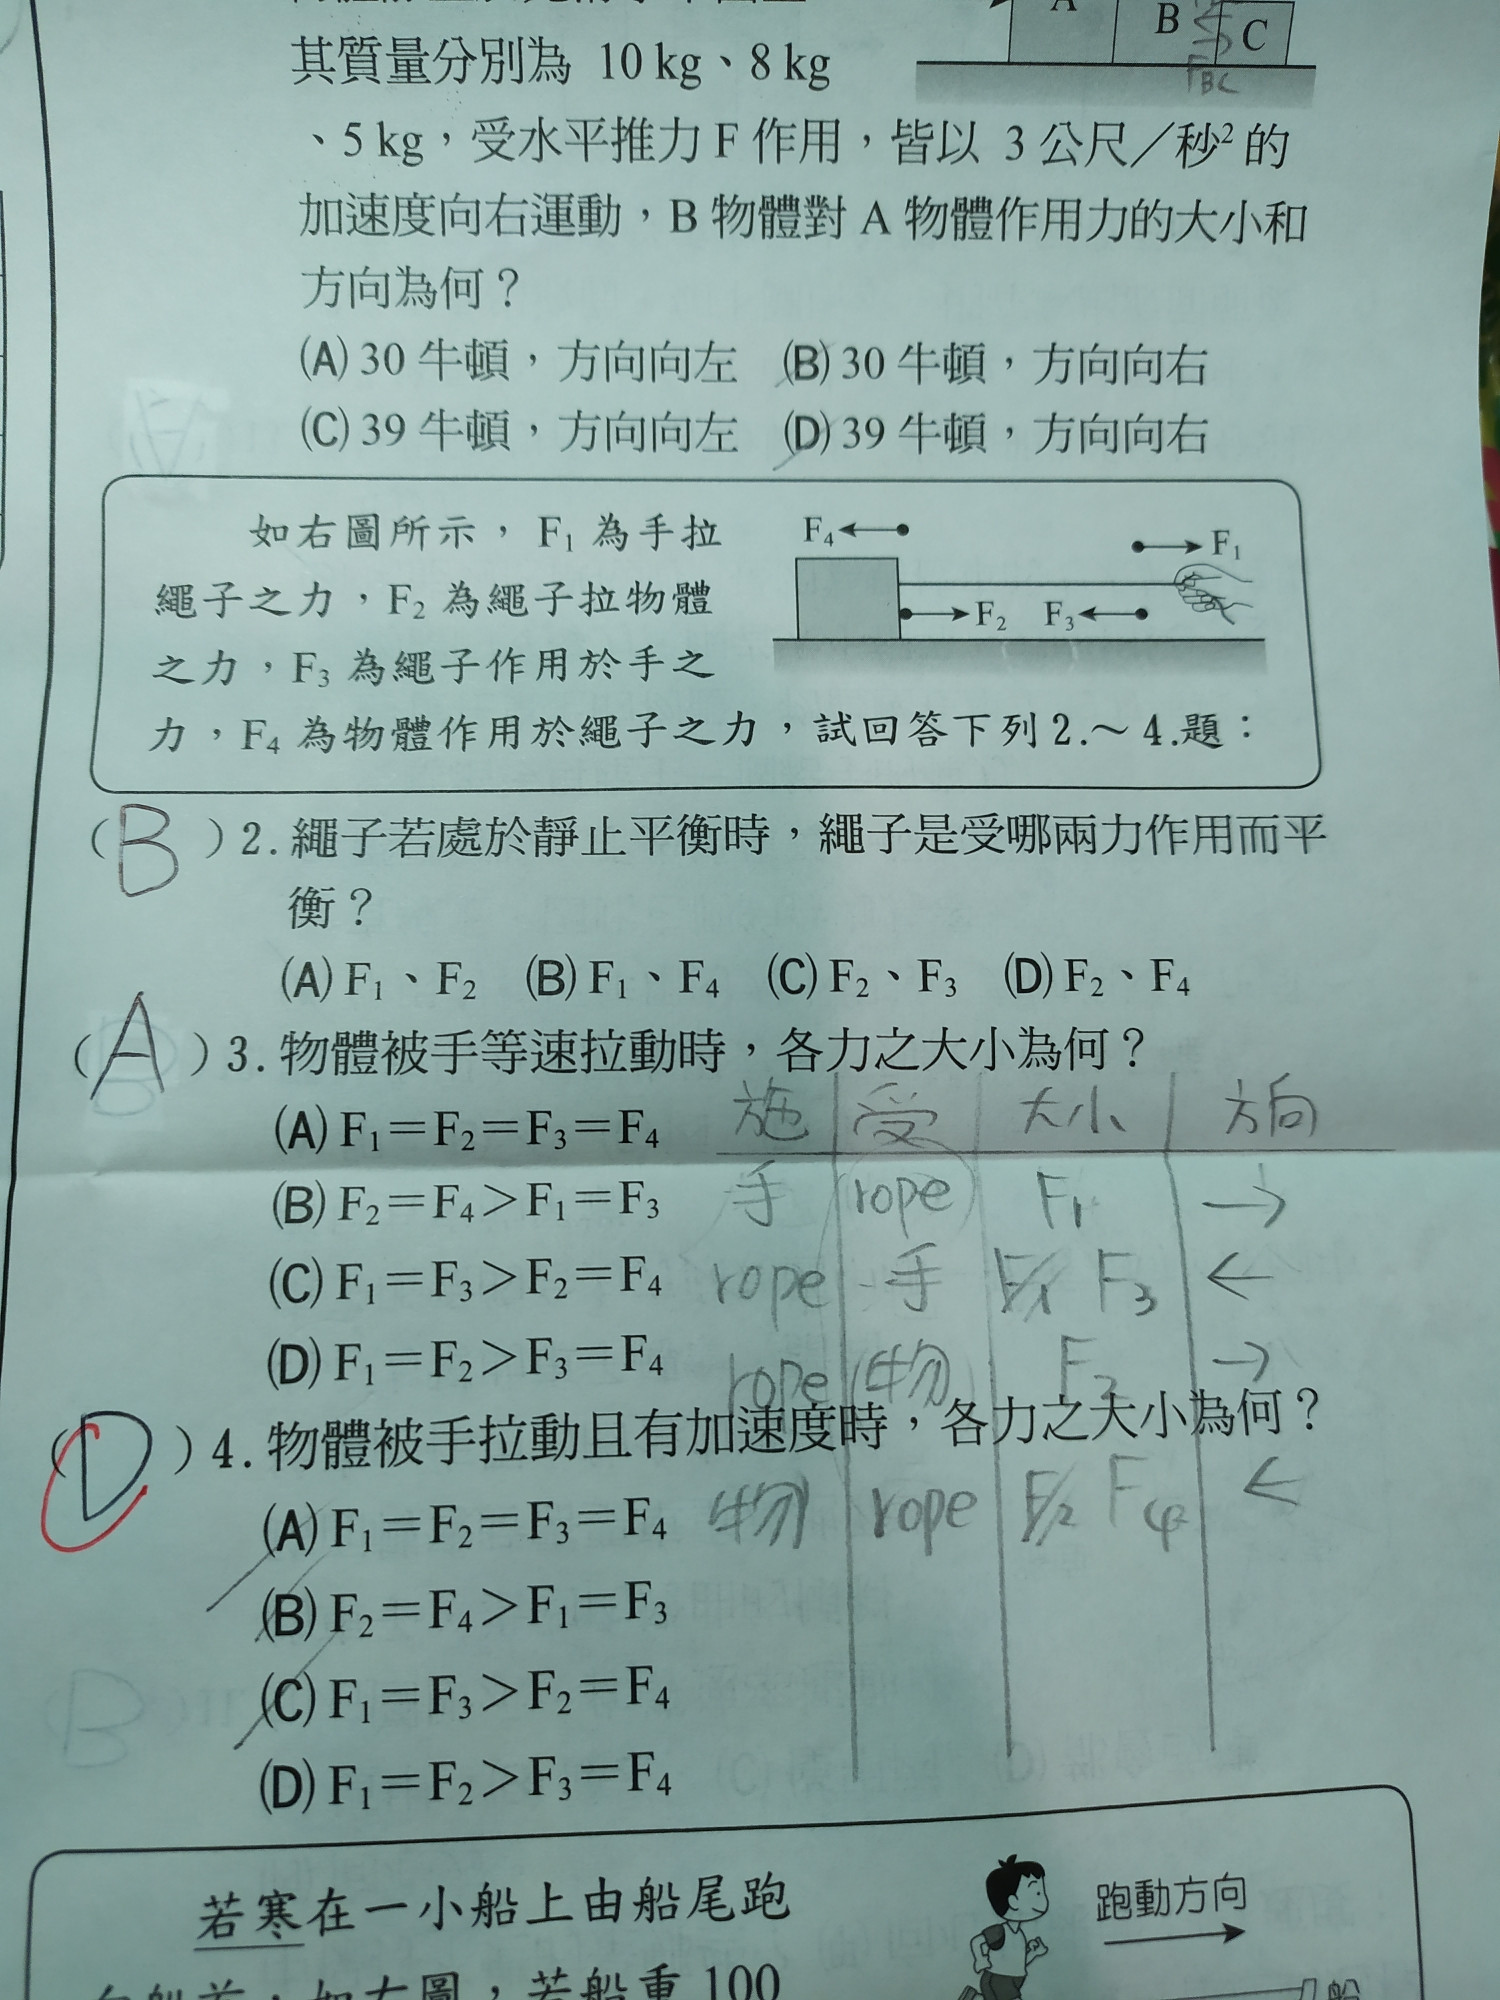 A B C
F_BC
其質量分別為 10 kg、8 kg
、5 kg，受水平推力 F 作用，皆以 3 公尺／秒² 的
加速度向右運動，B 物體對 A 物體作用力的大小和
方向為何？
(A) 30 牛頓，方向向左 (B) 30 牛頓，方向向右
(C) 39 牛頓，方向向左 (D) 39 牛頓，方向向右
如右圖所示，F₁ 為手拉
繩子之力，F₂ 為繩子拉物體
之力，F₃ 為繩子作用於手之
力，F₄ 為物體作用於繩子之力，試回答下列 2.～ 4.題：
F₄ F₁
F₂ F₃
( B ) 2. 繩子若處於靜止平衡時，繩子是受哪兩力作用而平
衡？
(A) F₁、F₂ (B) F₁、F₄ (C) F₂、F₃ (D) F₂、F₄
( A ) 3. 物體被手等速拉動時，各力之大小為何？
(A) F₁＝F₂＝F₃＝F₄
(B) F₂＝F₄＞F₁＝F₃
(C) F₁＝F₃＞F₂＝F₄
(D) F₁＝F₂＞F₃＝F₄
施 受 大小 方向
手 rope F₁ →
rope 手 F₁ F₃ ←
rope 物 F₂ →
物 rope F₂ F₄ ←
( D ) 4. 物體被手拉動且有加速度時，各力之大小為何？
(A) F₁＝F₂＝F₃＝F₄
(B) F₂＝F₄＞F₁＝F₃
(C) F₁＝F₃＞F₂＝F₄
(D) F₁＝F₂＞F₃＝F₄
若寒在一小船上由船尾跑
如右圖，若船重 100
跑動方向
船